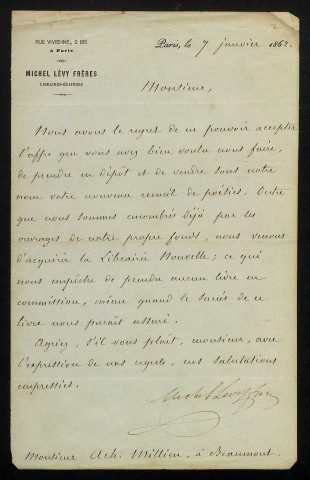 RUE VIVIENNE, 2 BIS
à Paris
MICHEL LÉVY FRÈRES
LIBRAIRES-ÉDITEURS
Paris, le 7 janvier 1862.
Monsieur,
Nous avons le regret de ne pouvoir accepter
l'offre que vous avez bien voulu nous faire,
de prendre en dépôt et de vendre sous notre
nom votre nouveau recueil de poésies. Outre
que nous sommes encombrés déjà par les
ouvrages de notre propre fonds, nous venons
d'acquérir la Librairie Nouvelle; ce qui
nous empêche de prendre aucun livre en
commission, même quand le succès de ce
livre nous paraît assuré.
Agréez, s'il vous plaît, monsieur, avec
l'expression de nos regrets, nos salutations
empressées.
Michel Lévy frères
Monsieur Ach. Millien, à Beaumont.